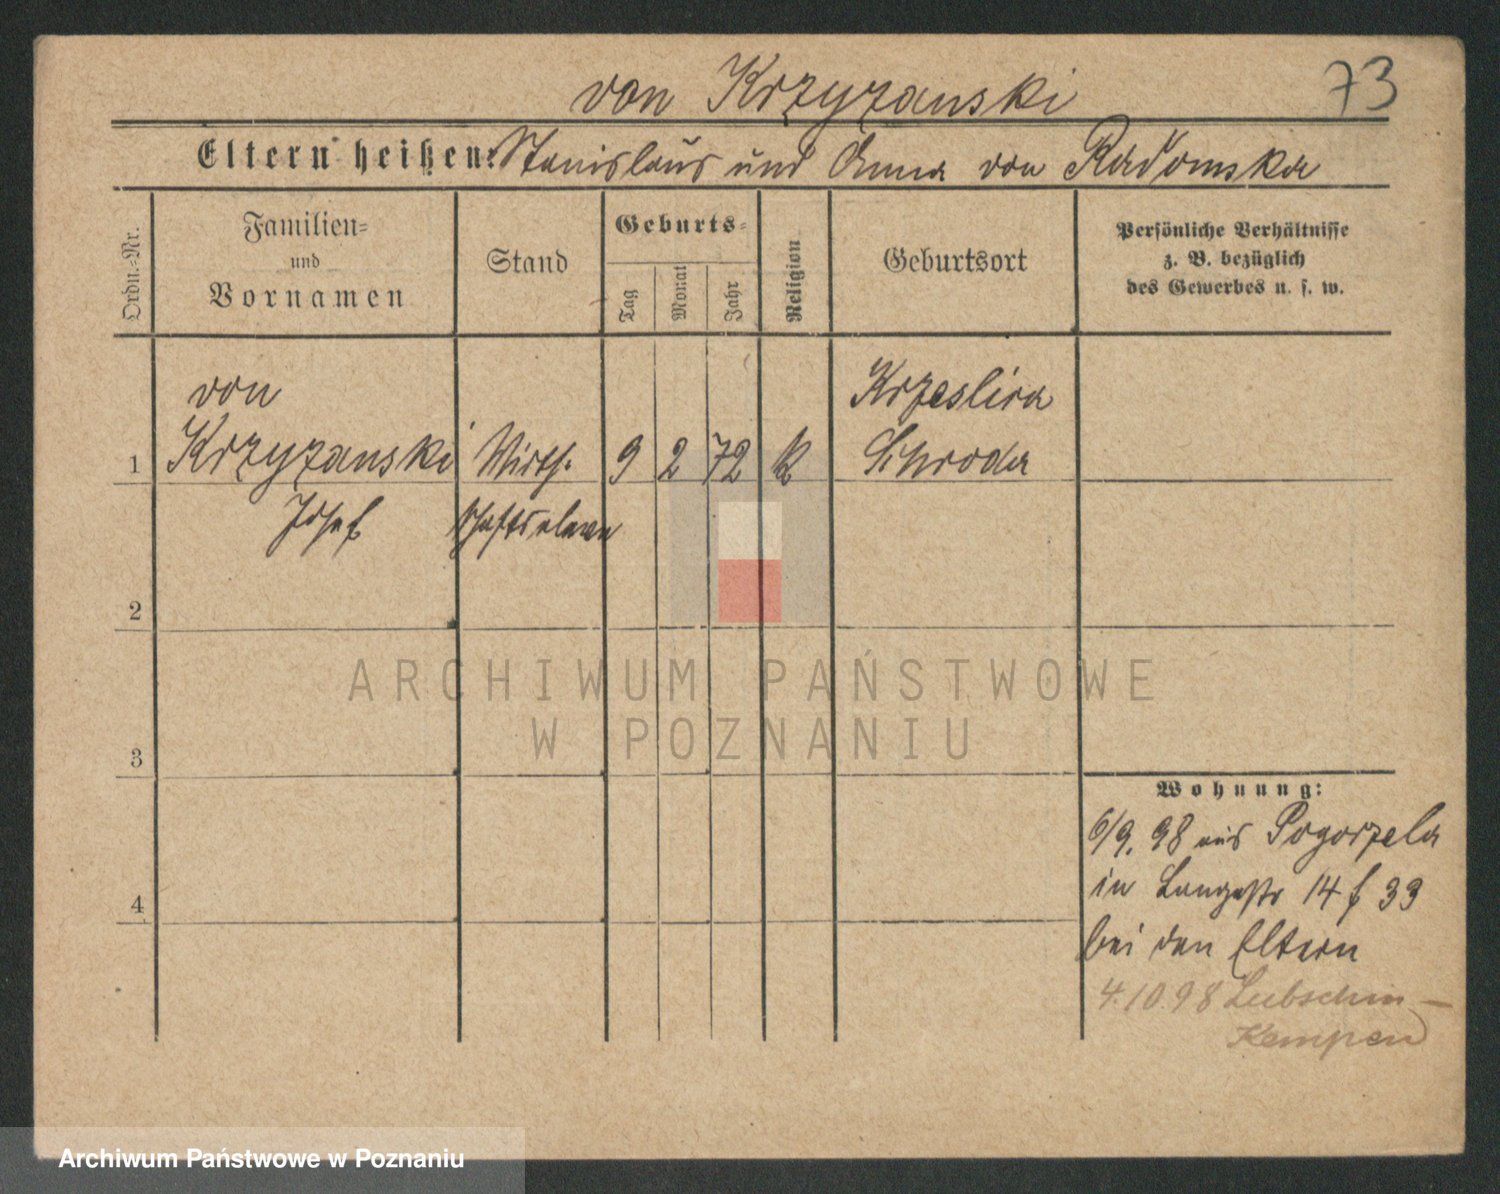 von Krzyzanski 73
Eltern heißen: Stanislaus und Anna von Radomska
Ordn.-Nr.
Familien-
und
Vornamen
Stand
Geburts-
Tag
Monat
Jahr
Religion
Geburtsort
Persönliche Verhältnisse
z. B. bezüglich
des Gewerbes u. s. w.
von
1 Krzyzanski
Josef
Wirth-
schaftseleve
9 2 72 K
Krzeslice
Schroda
2
3
4
Wohnung:
6/9. 98 aus Pogorzela
in Langestr 14 f 33
bei den Eltern
4.10.98 Lubschin -
Kempen
ARCHIWUM PAŃSTWOWE
W POZNANIU
Archiwum Państwowe w Poznaniu